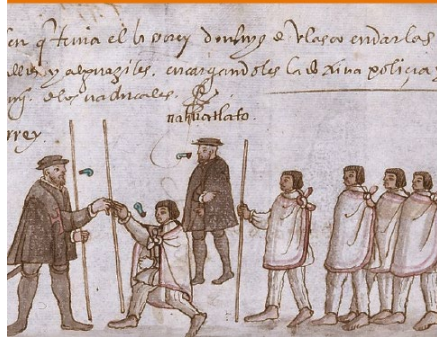 en q tenia el don luys de Velasco en dar las
y alguaziles. encargandoles la policia
de los naturales.
nahuatlato.
rrey.